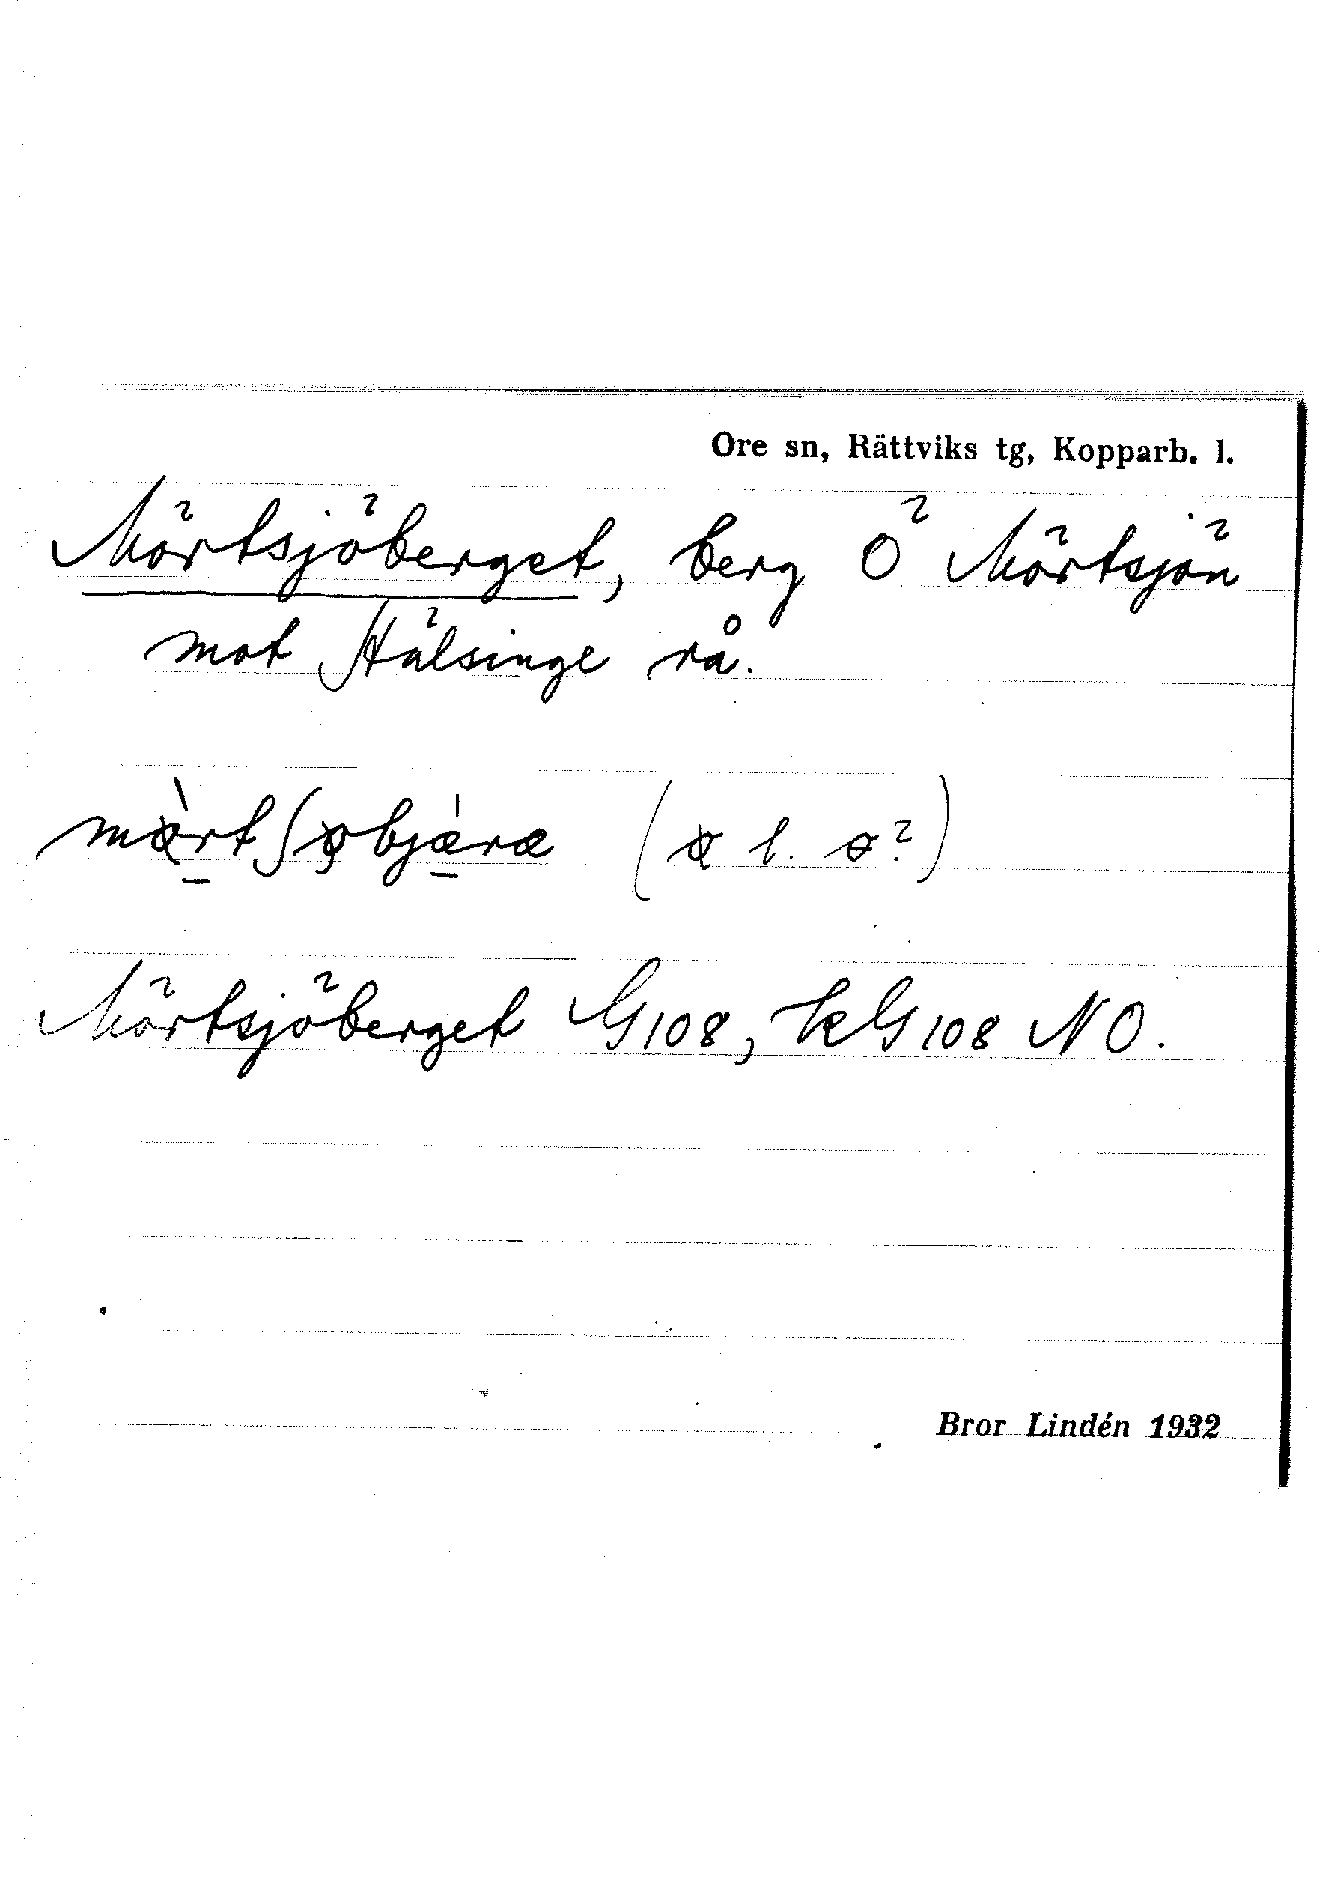 Ore sn, Rättviks tg, Kopparb. l.
Mörtsjöberget, berg Ö Mörtsjön
mot Hälsinge rå.
Mörtsjöberget G108, kG108 NO.
Bror Lindén 1932